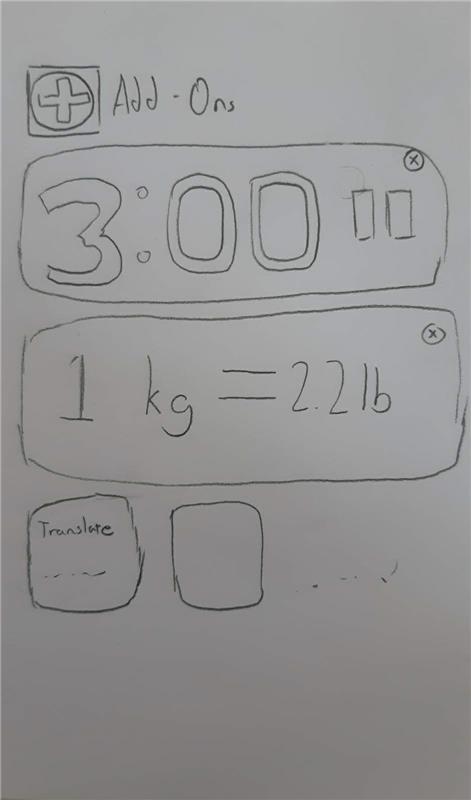 Add-Ons
x
3:00
x
1 kg = 2.2 lb
Translate